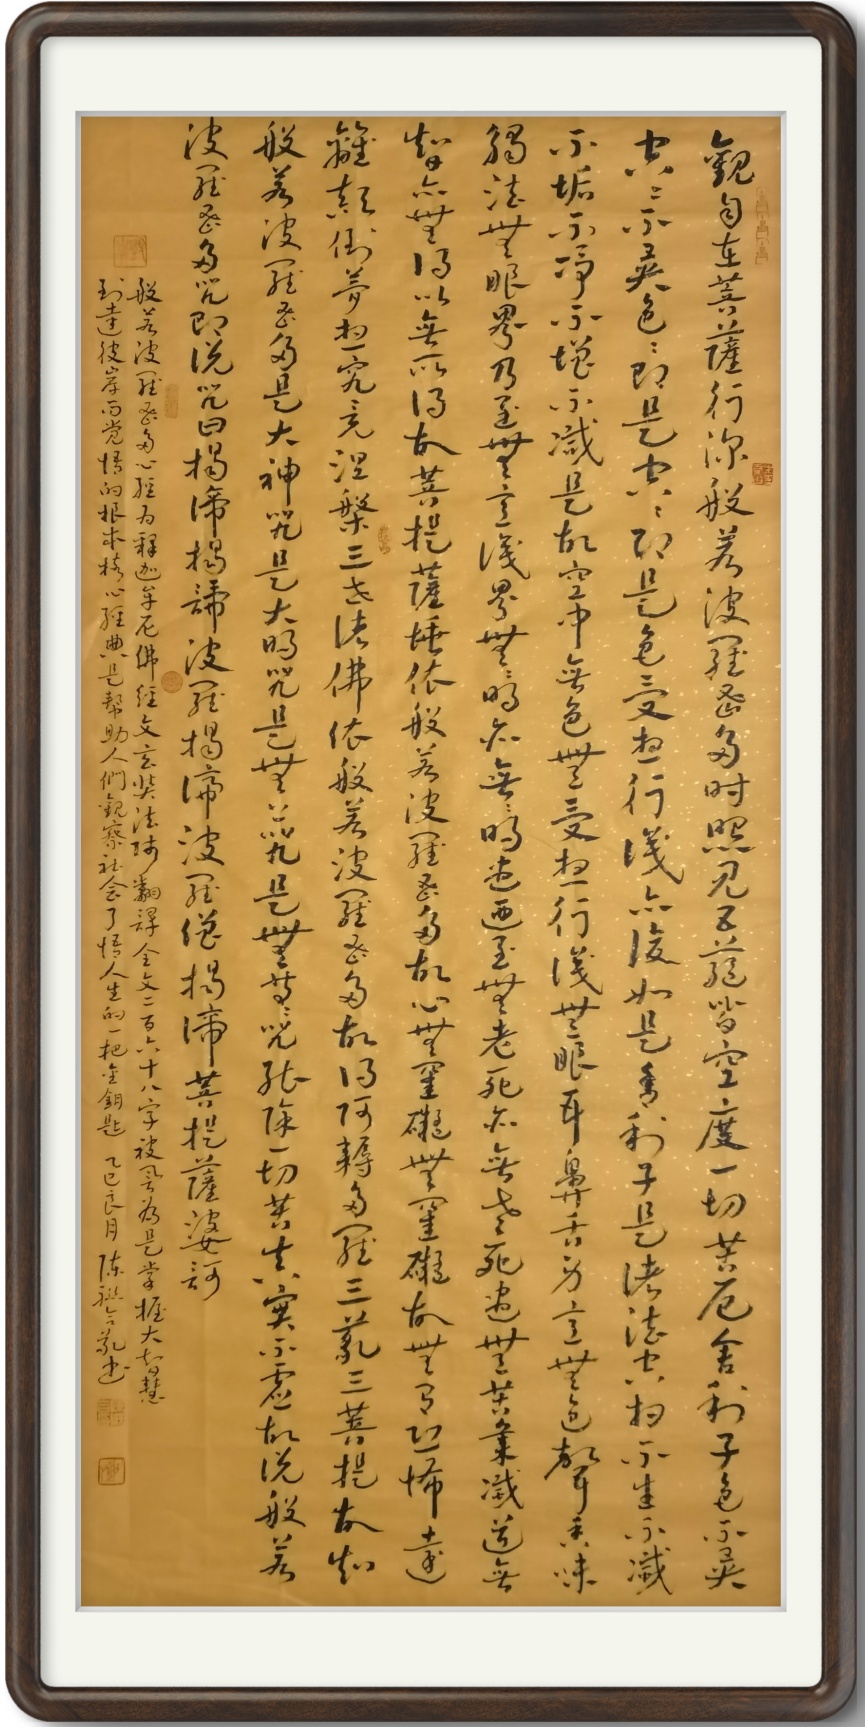 觀自在菩薩行深般若波羅蜜多時照見五蘊皆空度一切苦厄舍利子色不異
空〻不異色〻即是空〻即是色受想行識亦復如是舍利子是諸法空相不生不滅
不垢不淨不增不減是故空中無色無受想行識無眼耳鼻舌身意無色聲香味
觸法無眼界乃至無意識界無〻明亦無〻明盡乃至無老死亦無老死盡無苦集滅道無
智亦無得以無所得故菩提薩埵依般若波羅蜜多故心無罣礙無罣礙故無有恐怖遠
離顛倒夢想究竟涅槃三世諸佛依般若波羅蜜多故得阿耨多羅三藐三菩提故知
般若波羅蜜多是大神咒是大明咒是無上咒是無等〻咒能除一切苦真實不虛故說般若
波羅蜜多咒即說咒曰揭諦揭諦波羅揭諦波羅僧揭諦菩提薩婆訶
般若波羅蜜多心經為釋迦牟尼佛經文玄奘法師翻譯全文二百六十八字被譽為是掌握大智慧
到達彼岸而觉悟的根本核心經典是幫助人們觀察社会了悟人生的一把金鑰匙 乙巳良月 陳